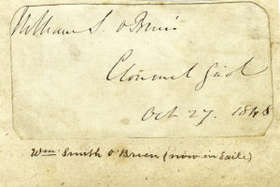 William S. O'Brien
Clonmel Gaol
Oct 27. 1848
Wm Smith O'Brien (now in Exile)